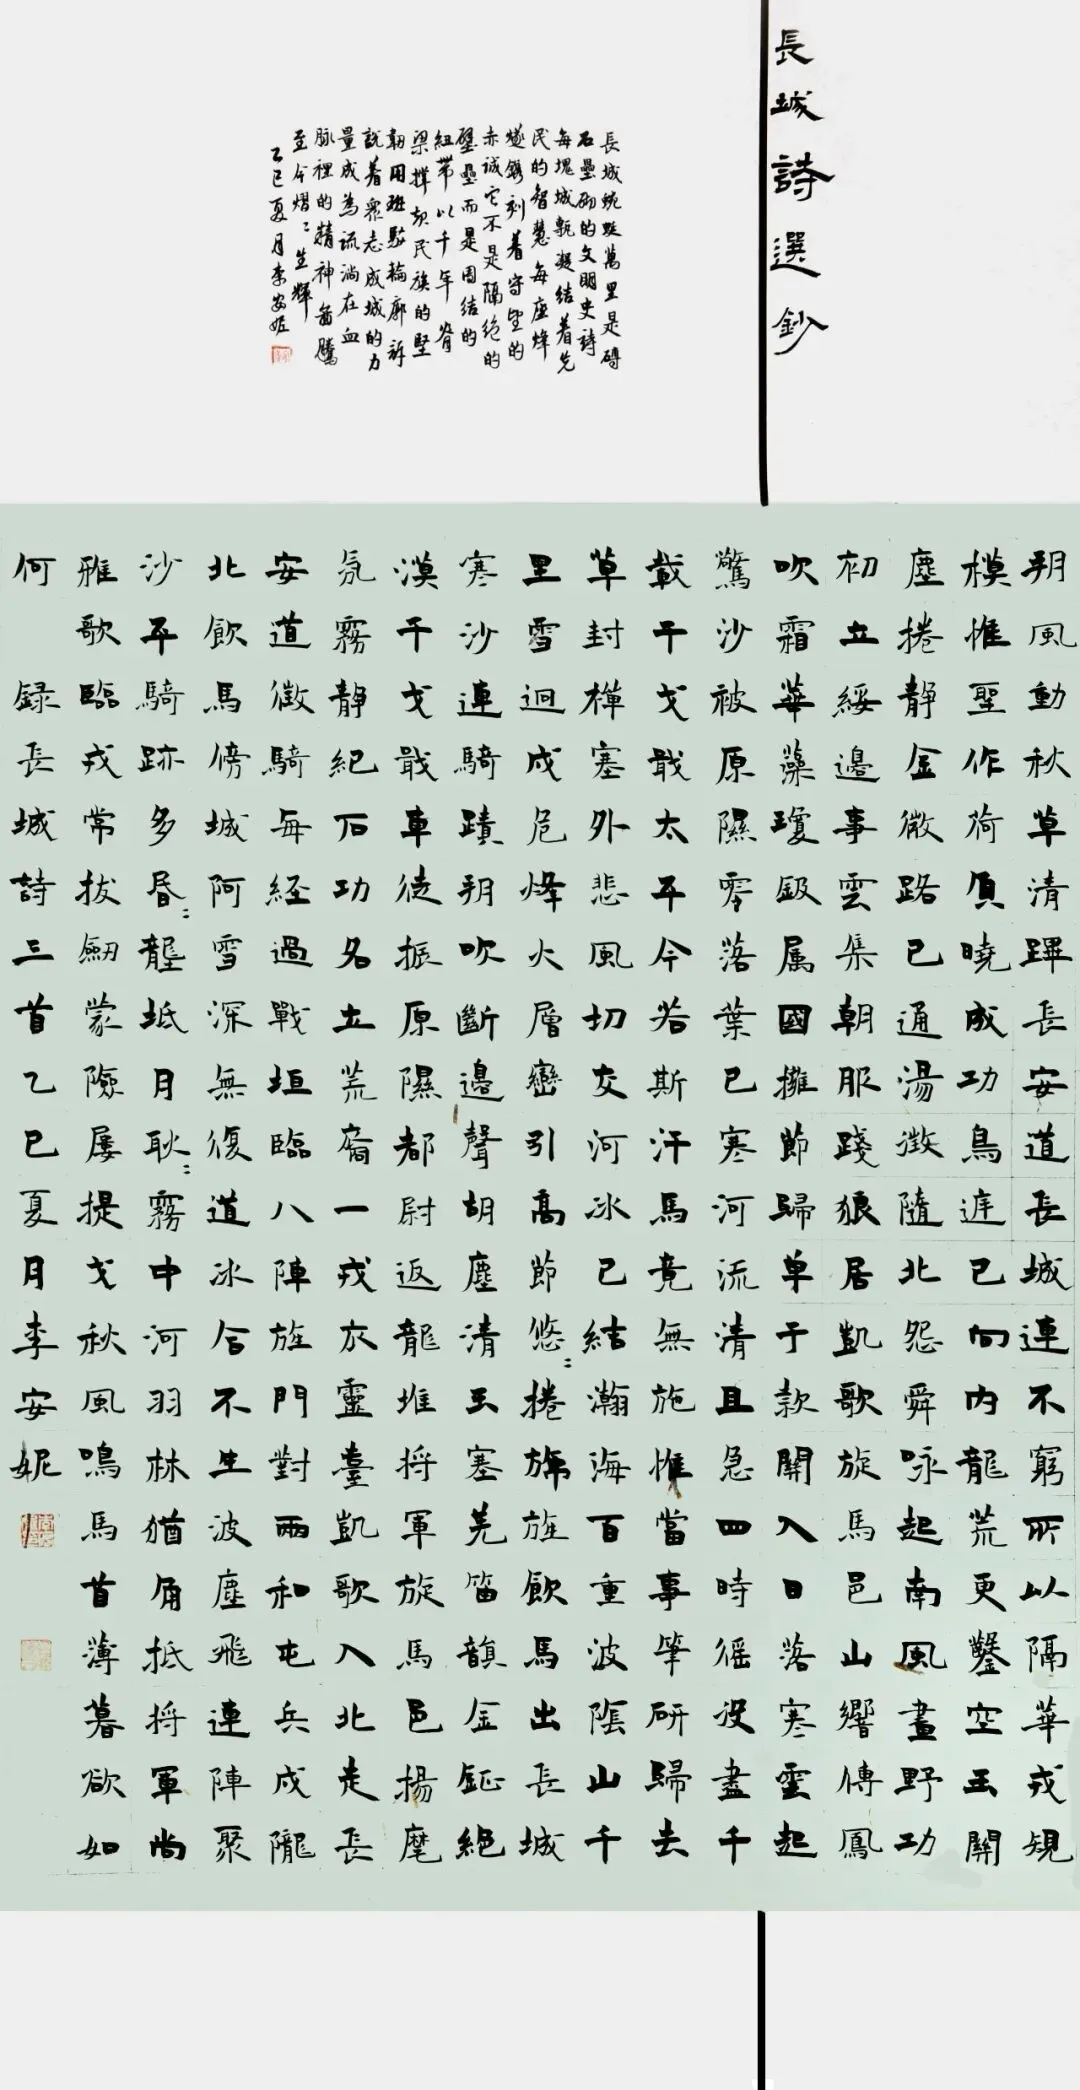 長城詩選鈔
長城蜿蜒萬里是磚
石壘砌的文明史詩
每塊城甎凝結着先
民的智慧每座烽
燧鎸刻着守望的
赤誠它不是隔絶的
壁壘而是團結的
紐帶以千年脊
梁撑起民族的堅
韌用斑駁輪廓訴
説着衆志成城的力
量成為流淌在血
脉裡的精神啚騰
至今熠〻生輝
乙巳夏月李安妮
朔風動秋草清蹕長安道長城連不窮所以隔華戎規
模惟聖作荷負曉成功鳥庭已向内龍荒更鑿空玉關
塵捲静金微路已通湯徵隨北怨舜咏起南風畫野功
初立綏邊事雲集朝服踐狼居凱歌旋馬邑山響傳鳳
吹霜華藻瓊鈒属國擁節歸單于款關入日落寒雲起
驚沙被原隰零落葉已寒河流清且急四時徭役盡千
載干戈戢太平今若斯汗馬竟無施惟當事筆研歸去
草封禪塞外悲風切交河冰已結瀚海百重波陰山千
里雪迥戍危烽火層巒引高節悠〻捲旆旌飲馬出長城
寒沙連騎蹟朔吹斷邊聲胡塵清玉塞羌笛韻金鉦絕
漠干戈戢車徒振原隰都尉返龍堆将軍旋馬邑揚麾
氛霧静紀石功名立荒裔一戎衣靈臺凱歌入北走長
安道徵騎每經過戰垣臨八陣旌門對兩和屯兵戍隴
北飲馬傍城阿雪深無復道冰合不生波塵飛連陣聚
沙平騎跡多昏〻隴坻月耿〻霧中河羽林猶角抵将軍尚
雅歌臨戎常拔劍蒙險屢提戈秋風鳴馬首薄暮欲如
何 録長城詩三首乙巳夏月李安妮